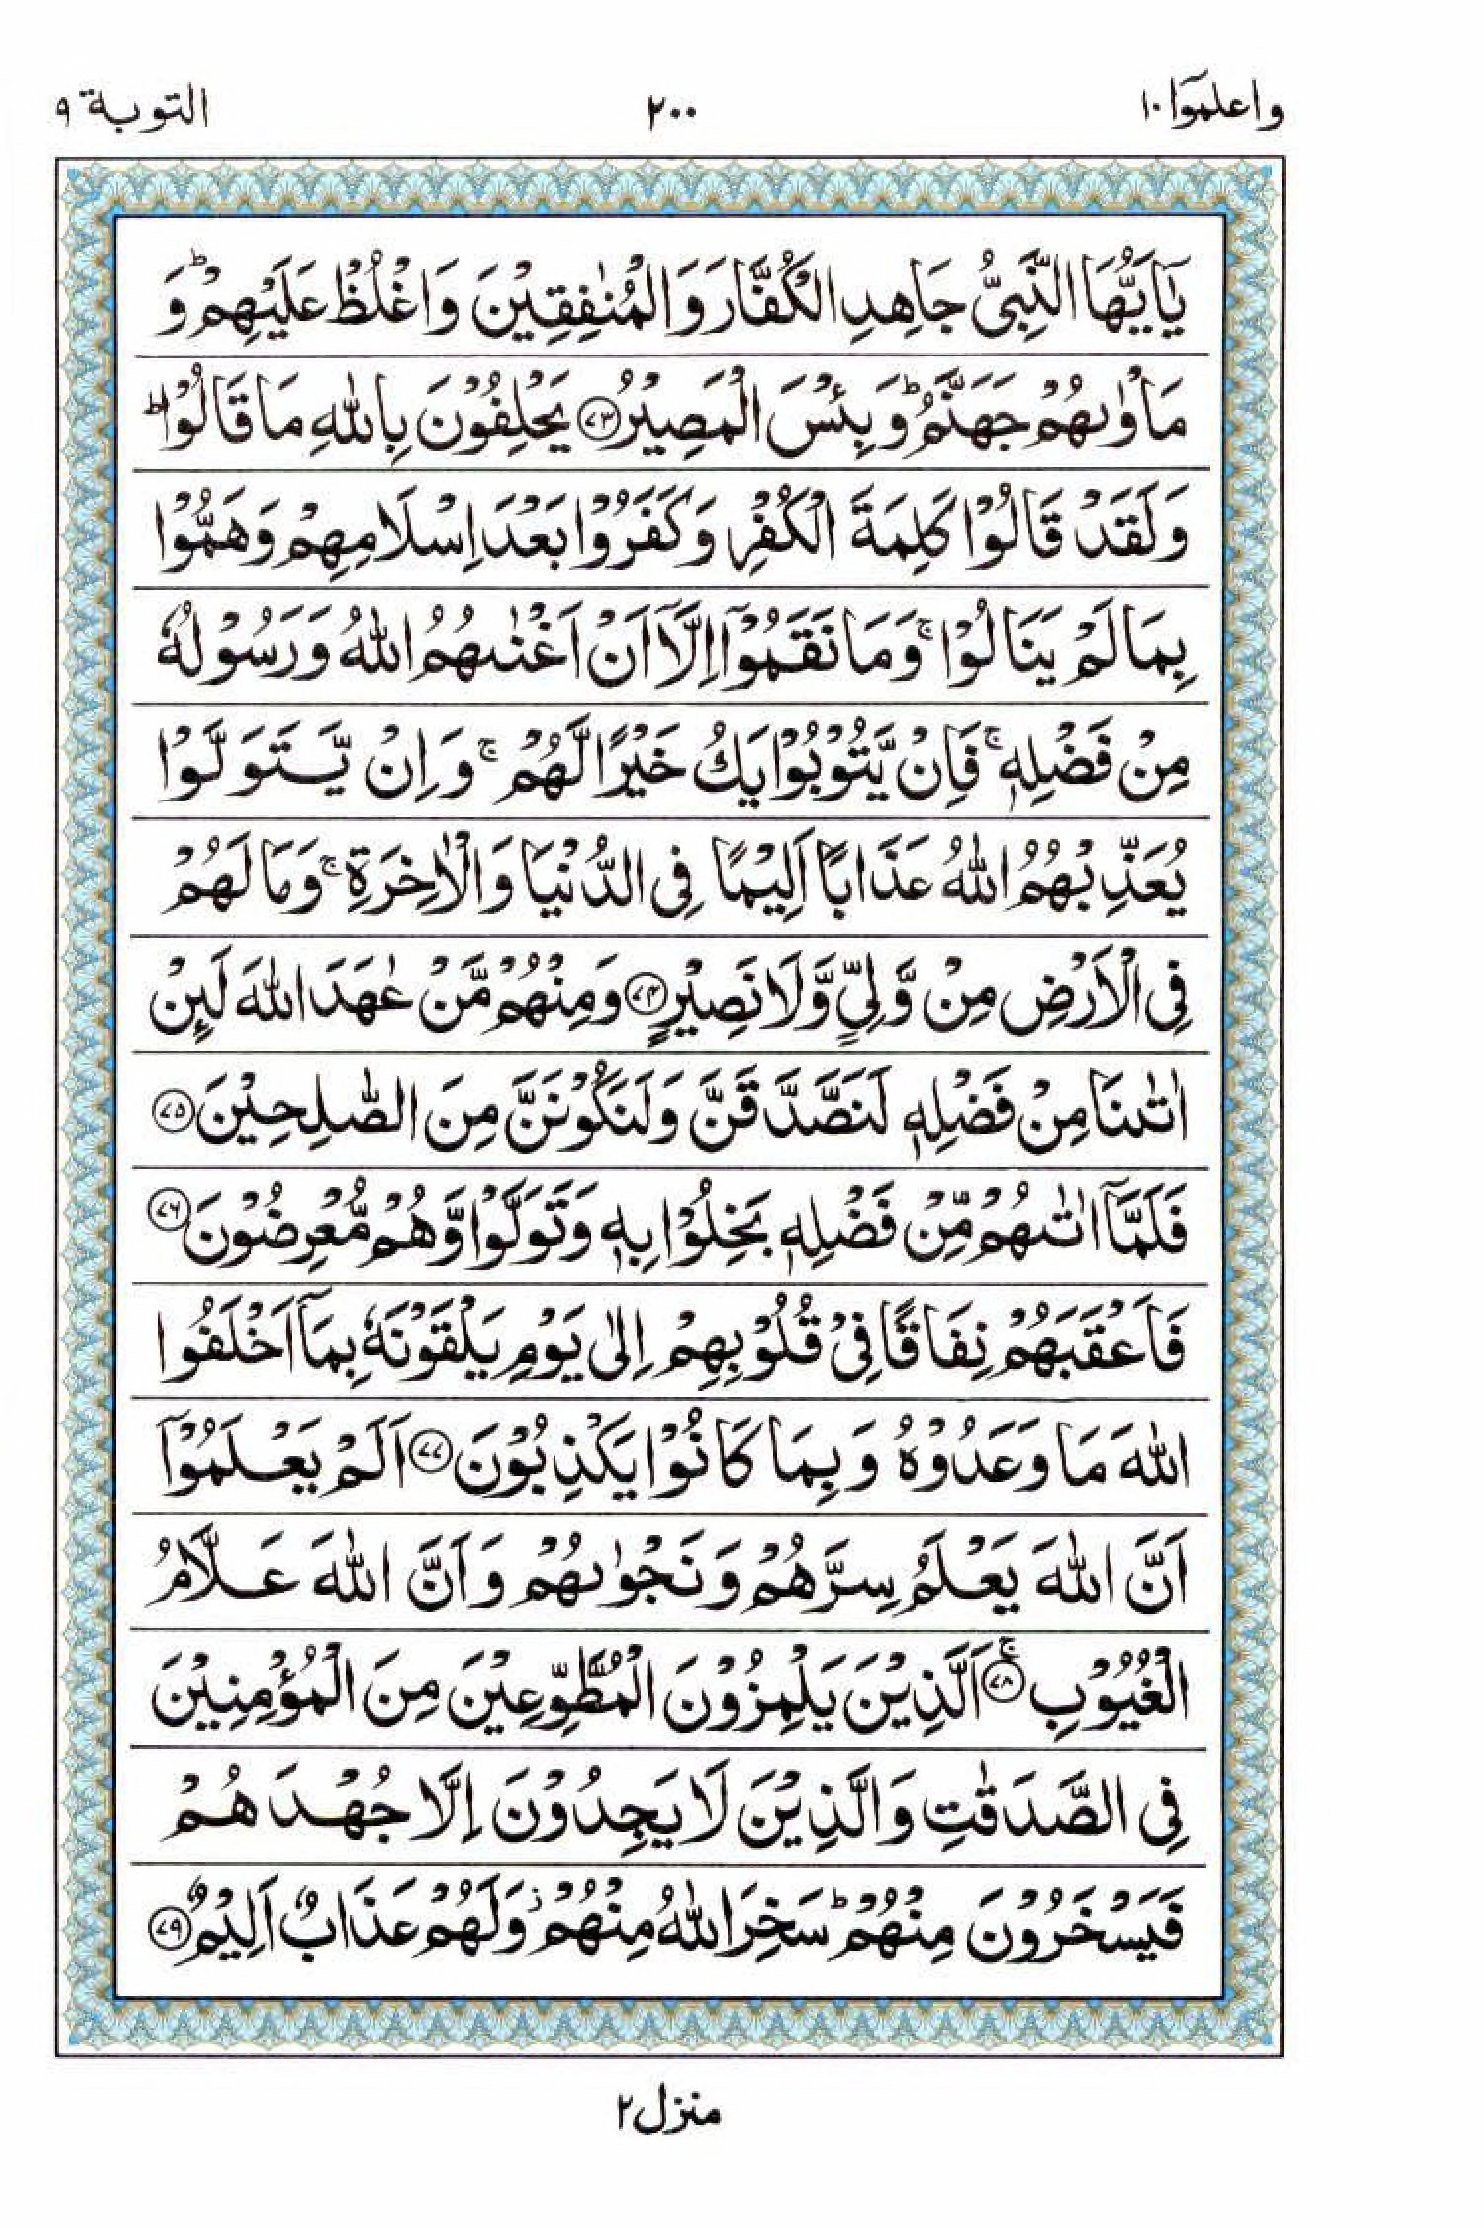 واعلموۤا ١٠
٢٠٠
التوبة ٩
يٰۤاَيُّهَا النَّبِىُّ جَاهِدِ الۡكُفَّارَ وَالۡمُنٰفِقِيۡنَ وَاغۡلُظۡ عَلَيۡهِمۡ‌ؕ وَ
مَاۡوٰٮهُمۡ جَهَـنَّمُ‌ؕ وَبِئۡسَ الۡمَصِيۡرُ ﴿۷۳﴾ يَحۡلِفُوۡنَ بِاللّٰهِ مَا قَالُوۡا ؕ
وَلَقَدۡ قَالُوۡا كَلِمَةَ الۡكُفۡرِ وَكَفَرُوۡا بَعۡدَ اِسۡلَامِهِمۡ وَهَمُّوۡا
بِمَا لَمۡ يَنَالُوۡا‌ ۚ وَمَا نَقَمُوۡۤا اِلَّاۤ اَنۡ اَغۡنٰٮهُمُ اللّٰهُ وَرَسُوۡلُهٗ
مِنۡ فَضۡلِهٖ‌ ۚ فَاِنۡ يَّتُوۡبُوۡا يَكُ خَيۡرًا لَّهُمۡ‌ ۚ وَاِنۡ يَّتَوَلَّوۡا
يُعَذِّبۡهُمُ اللّٰهُ عَذَابًا اَلِيۡمًا فِى الدُّنۡيَا وَالۡاٰخِرَةِ‌ ۚ وَمَا لَهُمۡ
فِى الۡاَرۡضِ مِنۡ وَّلِىٍّ وَّلَا نَصِيۡرٍ ﴿۷۴﴾ وَمِنۡهُمۡ مَّنۡ عٰهَدَ اللّٰهَ لَٮِٕنۡ
اٰتٰٮنَا مِنۡ فَضۡلِهٖ لَـنَصَّدَّقَنَّ وَلَنَكُوۡنَنَّ مِنَ الصّٰلِحِيۡنَ ﴿۷۵﴾
فَلَمَّاۤ اٰتٰٮهُمۡ مِّنۡ فَضۡلِهٖ بَخِلُوۡا بِهٖ وَتَوَلَّوْا وَّهُمۡ مُّعۡرِضُوۡنَ ﴿۷۶﴾
فَاَعۡقَبَهُمۡ نِفَاقًا فِىۡ قُلُوۡبِهِمۡ اِلٰى يَوۡمِ يَلۡقَوۡنَهٗ بِمَاۤ اَخۡلَفُوا
اللّٰهَ مَا وَعَدُوۡهُ وَبِمَا كَانُوۡا يَكۡذِبُوۡنَ ﴿۷۷﴾ اَلَمۡ يَعۡلَمُوۡۤا
اَنَّ اللّٰهَ يَعۡلَمُ سِرَّهُمۡ وَنَجۡوٰٮهُمۡ وَاَنَّ اللّٰهَ عَلَّامُ
الۡغُيُوۡبِ‌ ۚ ﴿۷۸﴾ اَلَّذِيۡنَ يَلۡمِزُوۡنَ الۡمُطَّوِّعِيۡنَ مِنَ الۡمُؤۡمِنِيۡنَ
فِى الصَّدَقٰتِ وَالَّذِيۡنَ لَا يَجِدُوۡنَ اِلَّا جُهۡدَهُمۡ
فَيَسۡخَرُوۡنَ مِنۡهُمۡؕ سَخِرَ اللّٰهُ مِنۡهُمۡ ز وَلَهُمۡ عَذَابٌ اَلِيۡمٌ ﴿۷۹﴾
منزل ٢